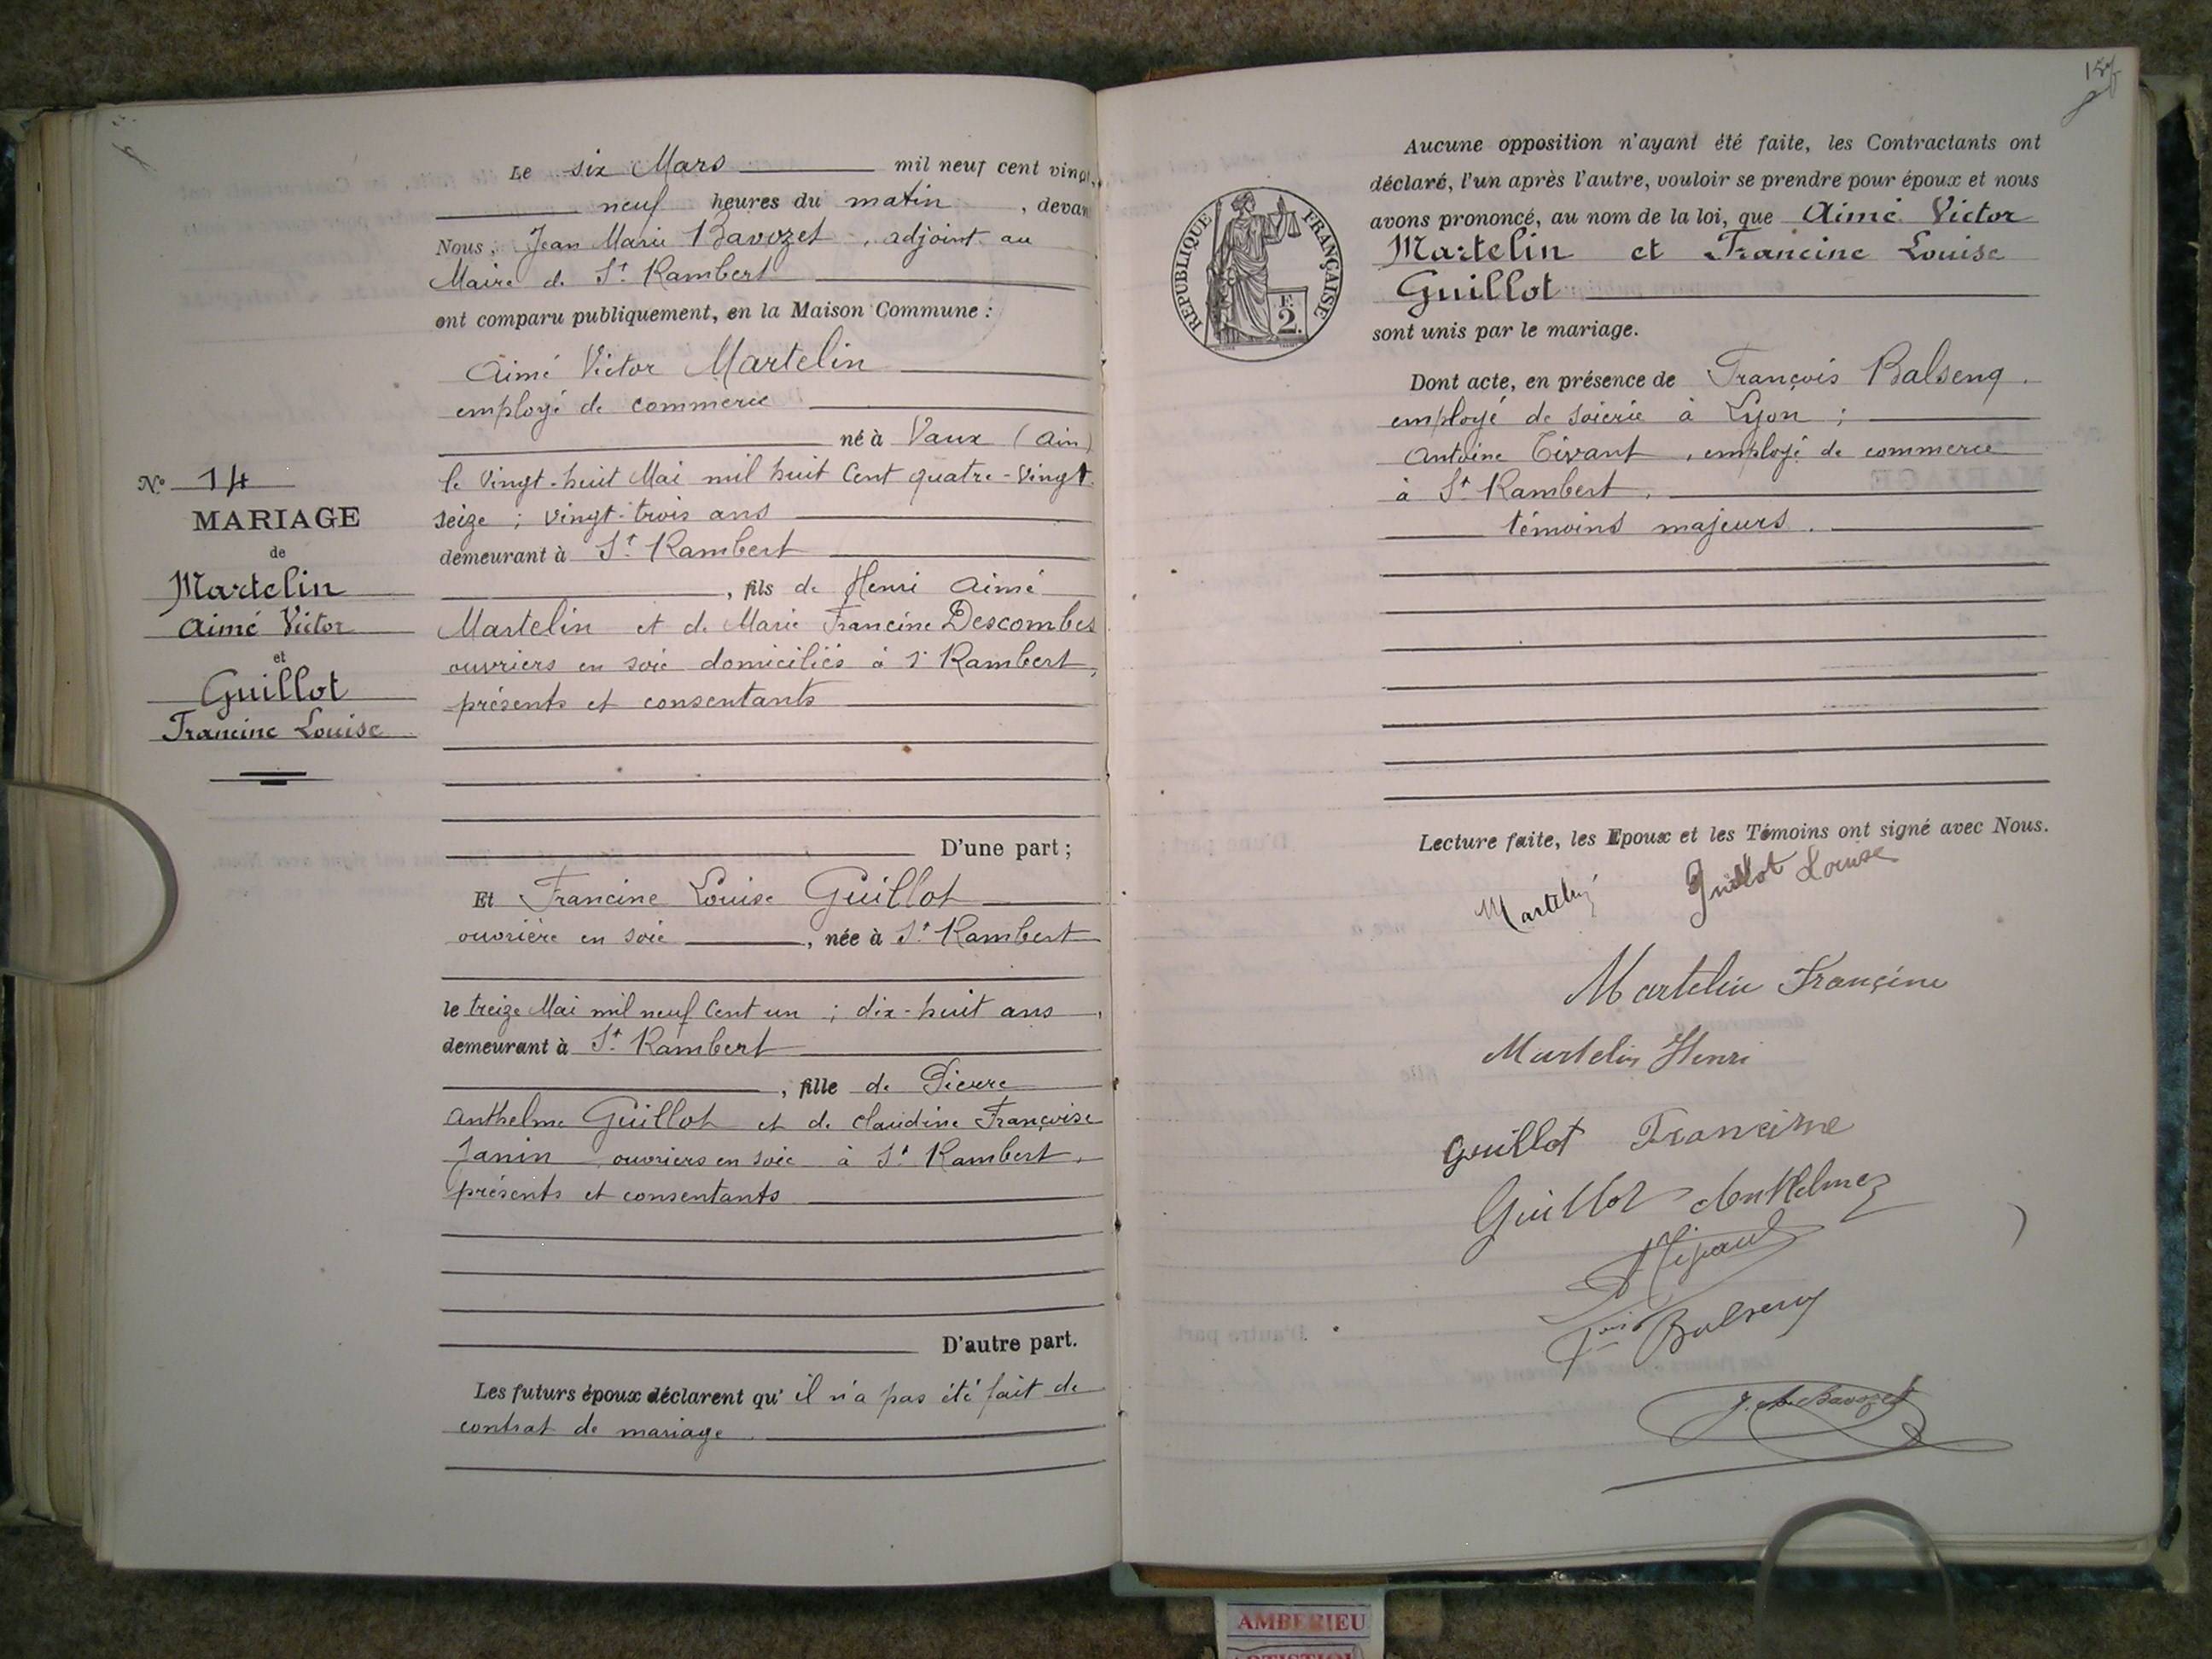 Le six Mars mil neuf cent vingt,
neuf heures du matin, devan
Nous, Jean Marie Bavozet, adjoint au
Maire de St Rambert
ont comparu publiquement, en la Maison Commune :
Aimé Victor Martelin
employé de commerce
né à Vaux (Ain)
le vingt-huit Mai mil huit cent quatre-vingt
seize ; vingt-trois ans
demeurant à St Rambert
, fils de Henri Aimé
Martelin et de Marie Francine Descombes
ouvriers en soie domiciliés à St Rambert,
présents et consentants
D'une part ;
Et Francine Louise Guillot
ouvrière en soie, née à St Rambert
le treize Mai mil neuf cent un ; dix-huit ans,
demeurant à St Rambert
, fille de Pierre
Anthelme Guillot et de Claudine Françoise
Janin ouvriers en soie à St Rambert,
présents et consentants
D'autre part.
Les futurs époux déclarent qu'il n'a pas été fait de
contrat de mariage.
No 14
MARIAGE
de
Martelin
Aimé Victor
et
Guillot
Francine Louise
Aucune opposition n'ayant été faite, les Contractants ont
déclaré, l'un après l'autre, vouloir se prendre pour époux et nous
avons prononcé, au nom de la loi, que Aimé Victor
Martelin et Francine Louise
Guillot
sont unis par le mariage.
Dont acte, en présence de François Balseng,
employé de soierie à Lyon ;
Antoine Tivant, employé de commerce
à St Rambert,
témoins majeurs.
RÉPUBLIQUE FRANÇAISE
F.
2.
Lecture faite, les Epoux et les Témoins ont signé avec Nous.
Martelin
Guillot Louise
Martelin Françine
Martelin Henri
Guillot Francine
Guillot Anthelme
Balseng
J. M. Bavozet
AMBERIEU